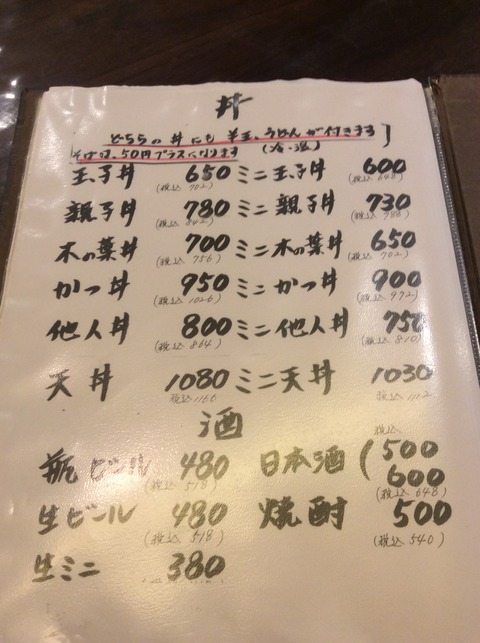 丼
どちらの丼にも半玉うどんが付きます
そばは、50円プラスになります (冷・温)
玉子丼 650 ミニ玉子丼 600
(税込 702) (税込 648)
親子丼 780 ミニ親子丼 730
(税込 842) (税込 788)
木の葉丼 700 ミニ木の葉丼 650
(税込 756) (税込 702)
かつ丼 950 ミニかつ丼 900
(税込 1026) (税込 972)
他人丼 800 ミニ他人丼 750
(税込 864) (税込 810)
天丼 1080 ミニ天丼 1030
税込 1166 税込 1112
酒
税込
瓶ビール 480 日本酒 (500
(税込 518) 600
(税込 648)
生ビール 480 焼酎 500
(税込 518) (税込 540)
生ミニ 380